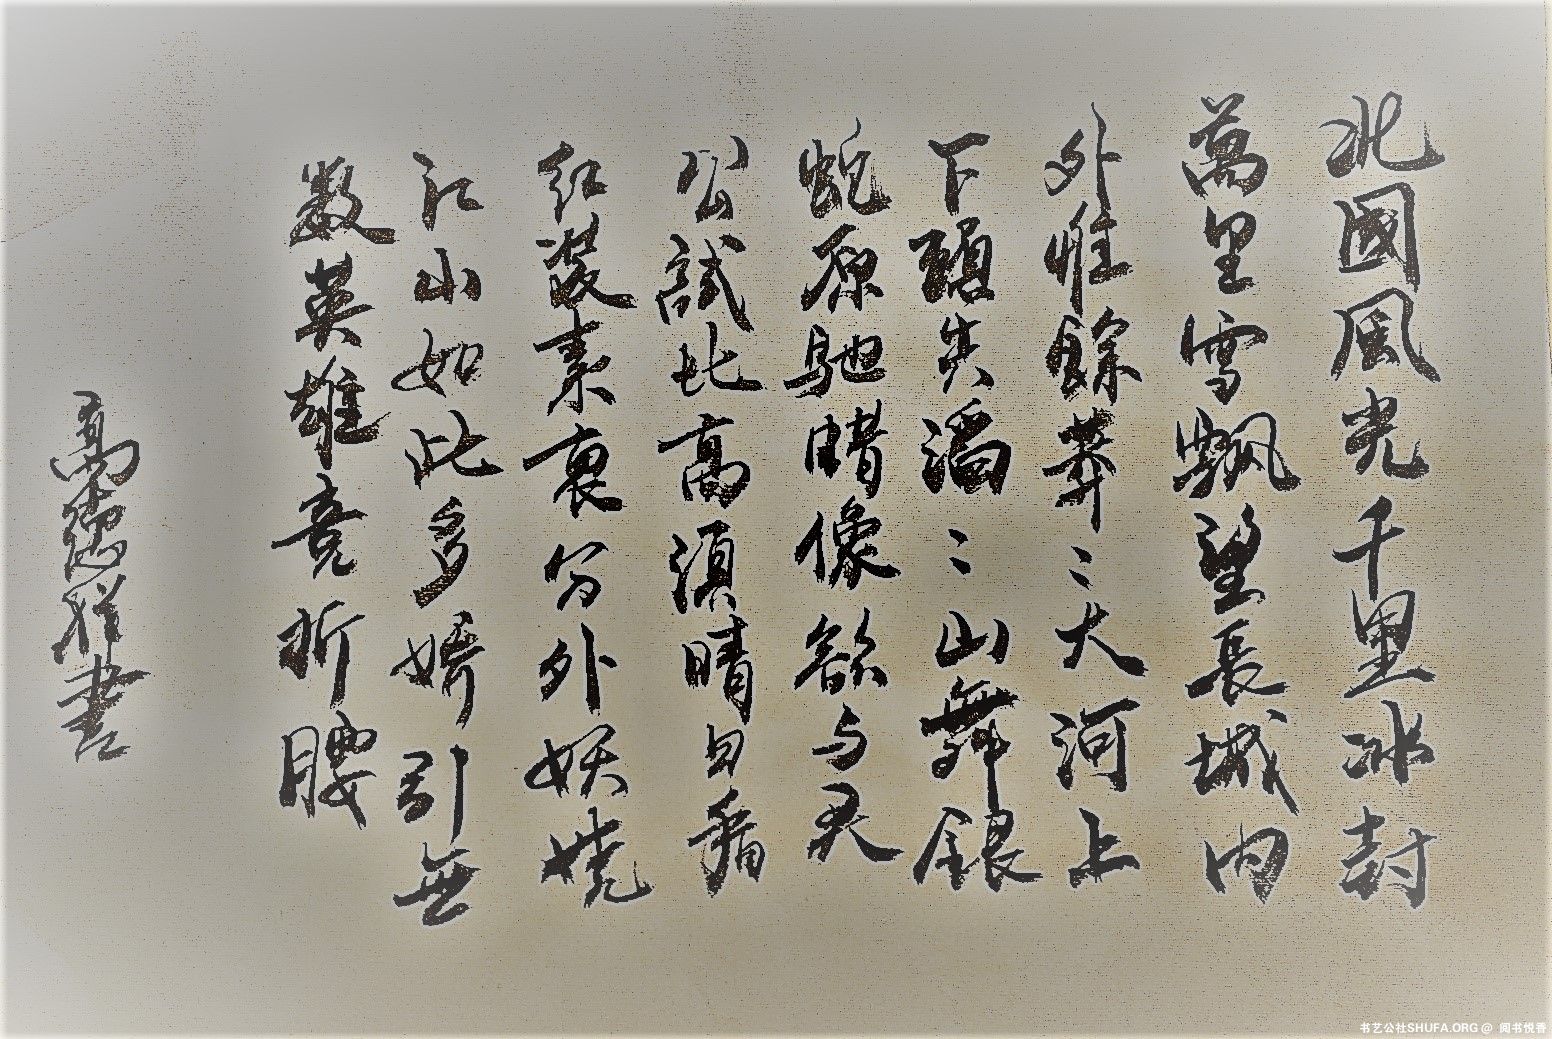 北國風光千里冰封
萬里雪飄望長城内
外惟餘莽〻大河上
下頓失滔〻山舞銀
蛇原馳腊像欲与天
公試比高須晴日看
红装素裹分外妖娆
江山如此多娇引無
数英雄竞折腰
高德祥書
书艺公社SHUFA.ORG @ 阅书悦香